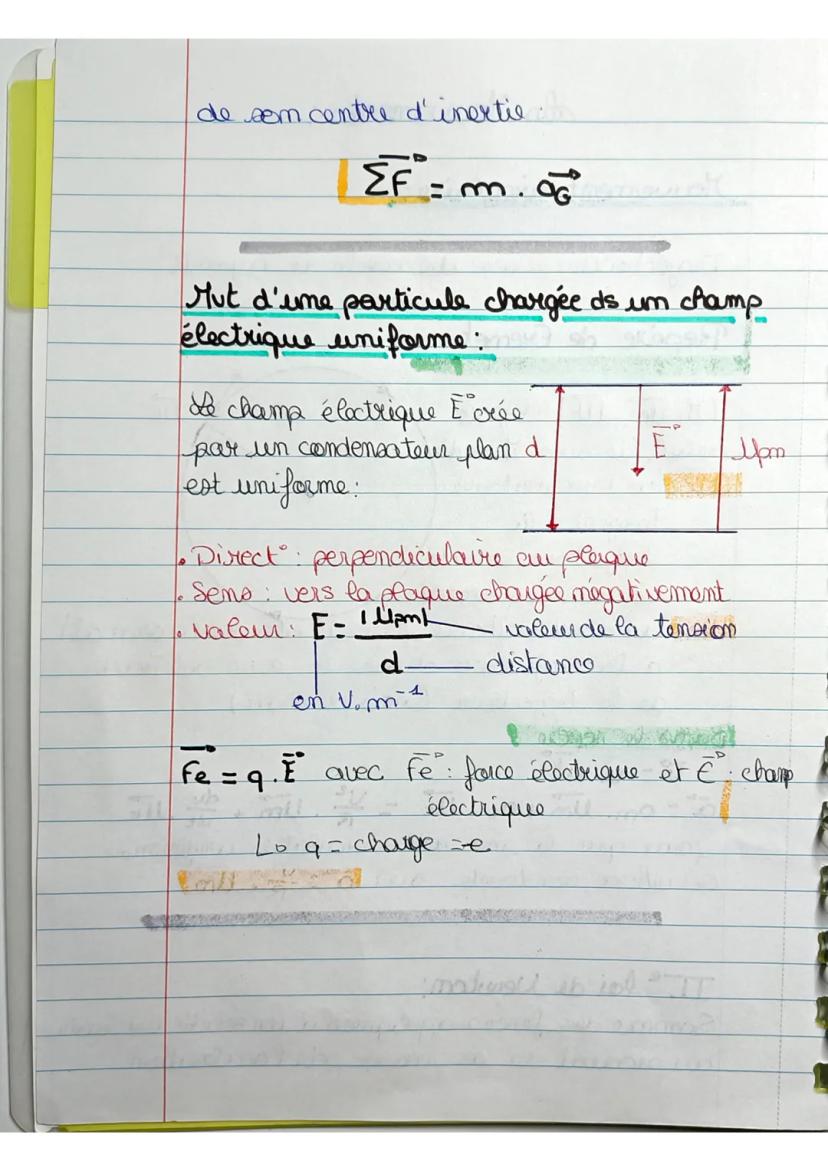 de son centre d'inertie.
ΣF⃗ = m . a⃗G
Mvt d'une particule chargée ds un champ
électrique uniforme :
Le champ électrique E⃗ crée
par un condensateur plan
est uniforme :
d E⃗ Upm
. Direct° : perpendiculaire au plaque
. Sens : vers la plaque chargée négativement
. valeur : E = |Upm| / d
valeur de la tension
distance
en V.m⁻¹
F⃗e = q . E⃗ avec F⃗e : force électrique et E⃗ : champ
électrique
↳ q = charge = -e